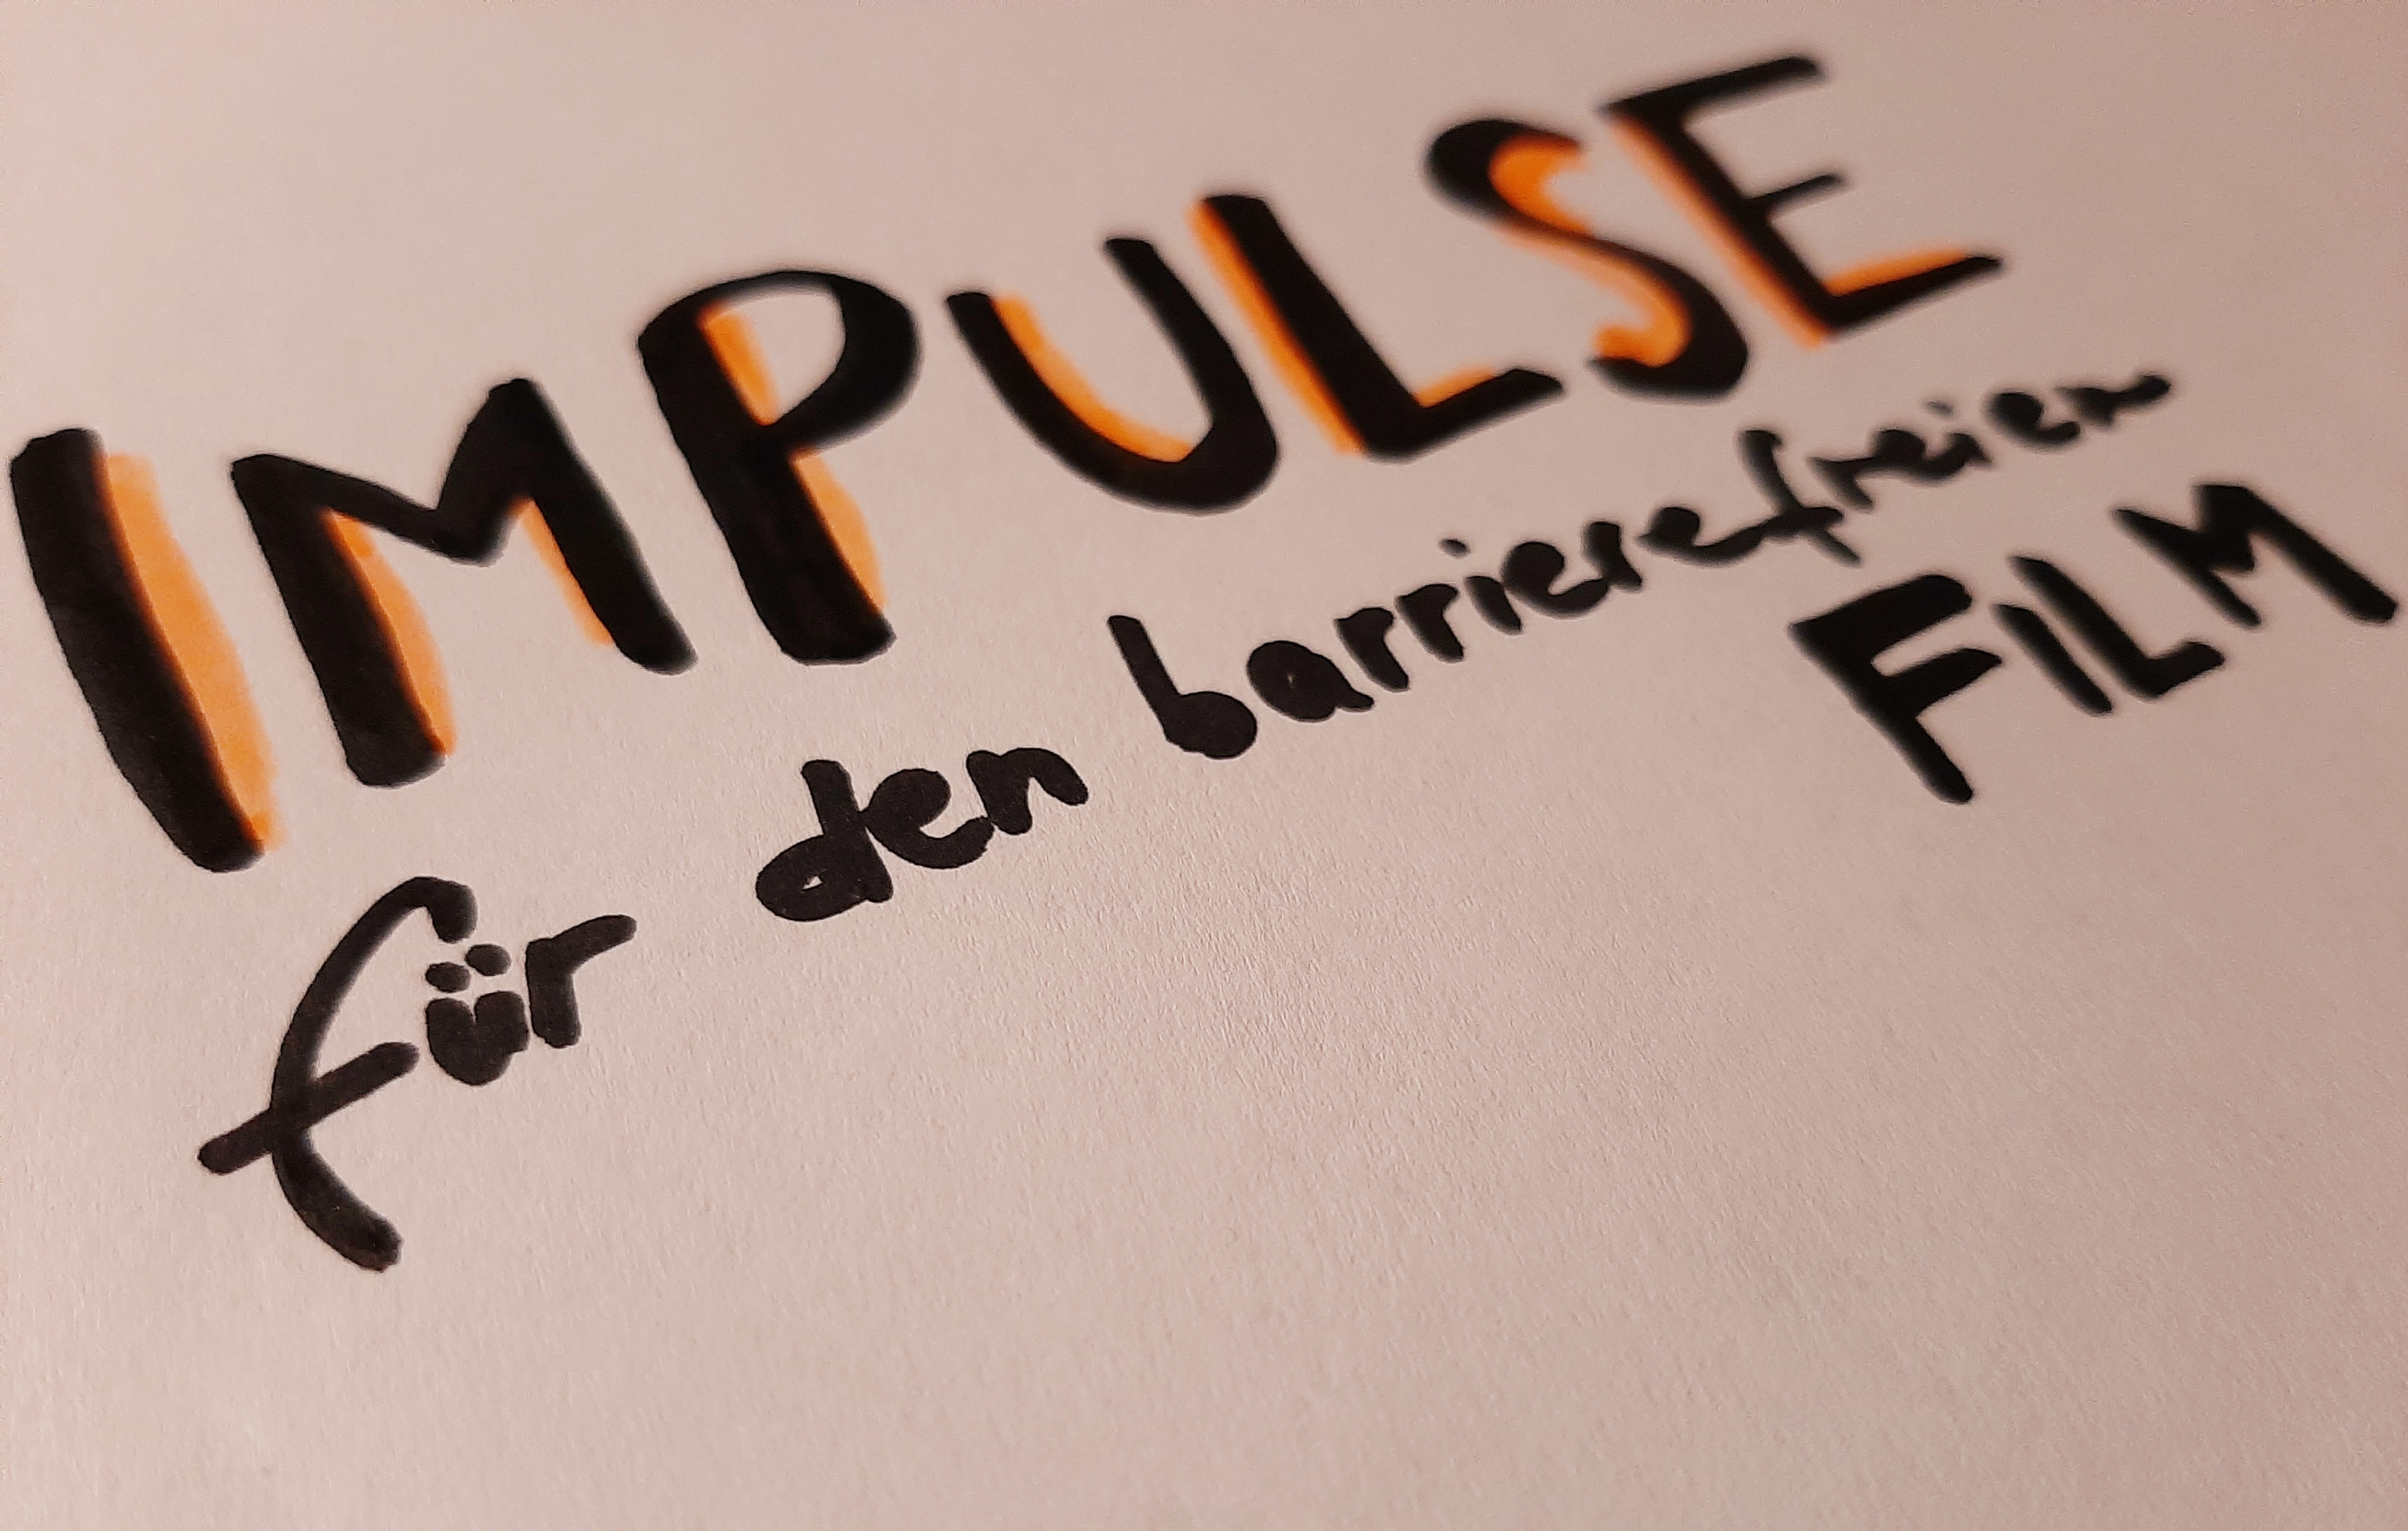 IMPULSE
für den barrierefreien
FILM